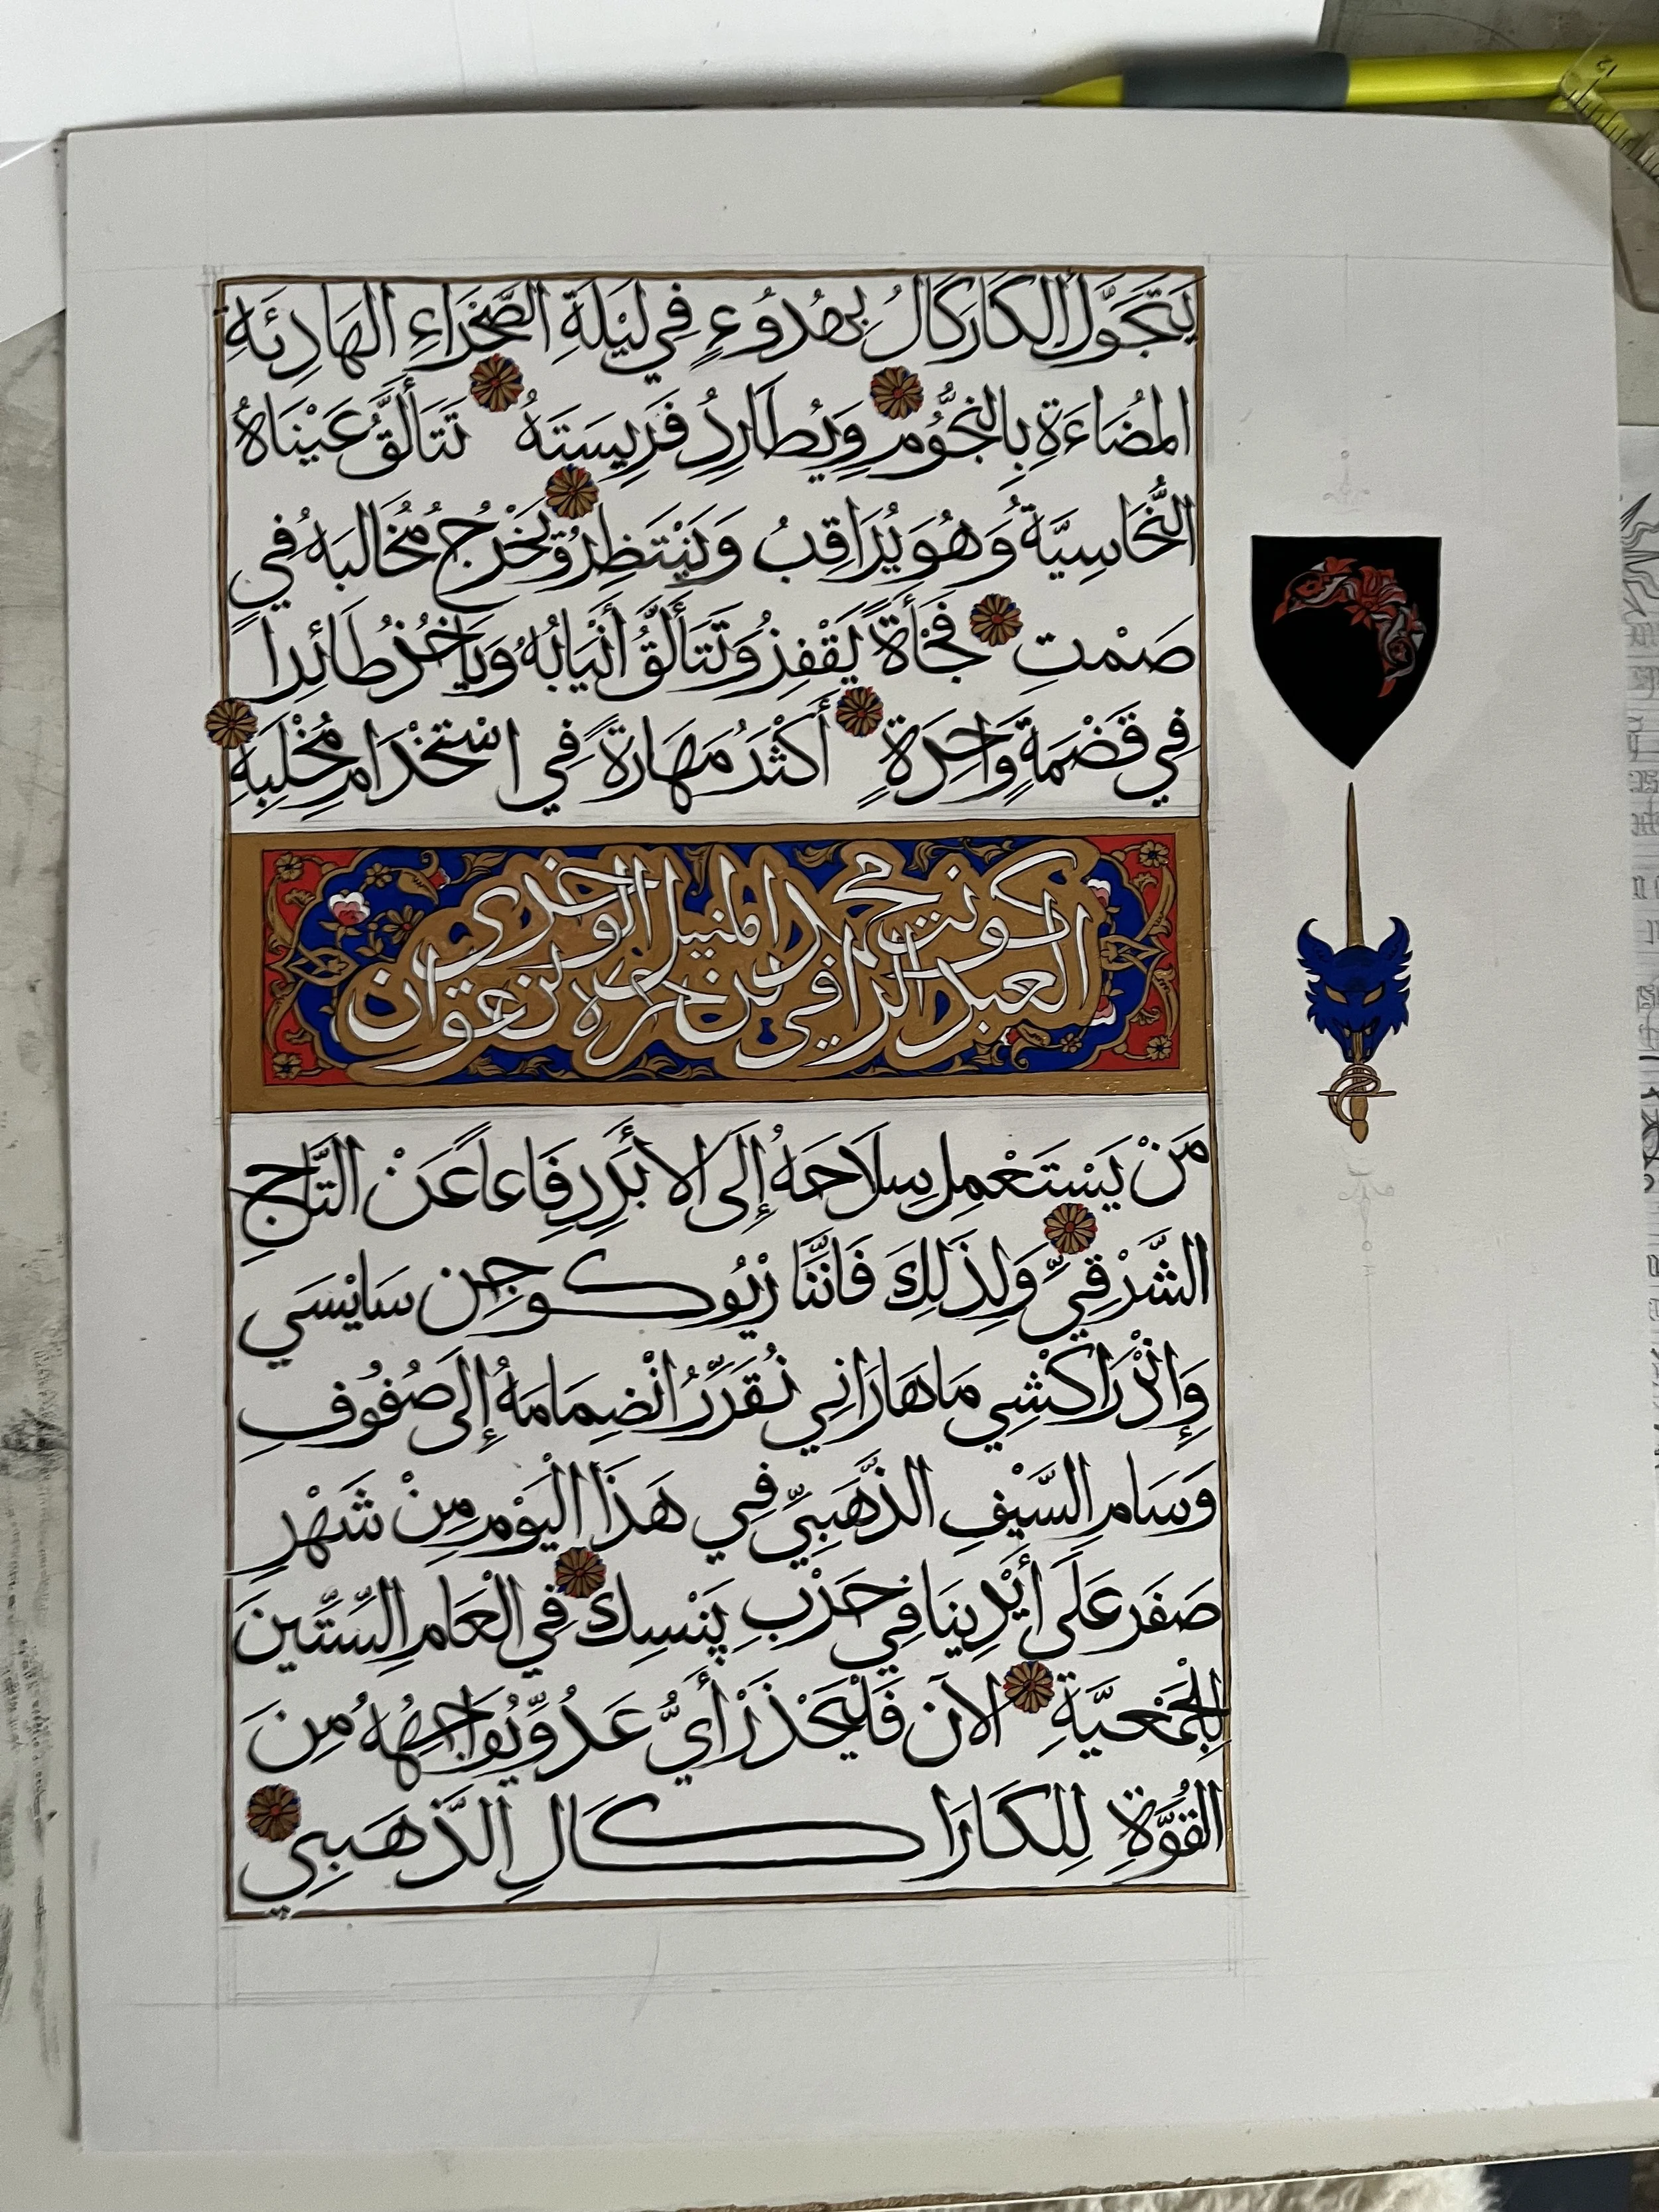 يَتَجَوَّلُ الكَارَكَالُ بِهُدُوءٍ فِي لَيْلَةِ الصَّحْرَاءِ الهَادِئَةِ
المُضَاءَةِ بِالنُّجُومِ وَيُطَارِدُ فَرِيسَتَهُ تَتَأَلَّقُ عَيْنَاهُ
النُّحَاسِيَّةُ وَهُوَ يُرَاقِبُ وَيَنْتَظِرُ وَيُخْرِجُ مُخَالبَهُ فِي
صَمْتٍ فَجْأَةً يَقْفِزُ وَتَتَأَلَّقُ أَنْيَابُهُ وَيَاخُذُ طَائِرا
فِي قَضْمَةٍ وَاحِدَةٍ أَكْثَرُ مَهَارَةً فِي اسْتَخْدَامِ مِخْلَبِهِ
كونت محمد المنيل الوخدي
العبد الرافي بن
مَنْ يَسْتَعْمِلِ سِلَاحَهُ إِلَى الأَبَدِ دِفَاعاً عَنْ التَّاجِ
الشَّرْقِيِّ وَلِذَلِكَ فَانَّنَا رْيُوكوجِن سَايْسَي
وَإِنْدْرَاكْشِي مَاهَارَانِي نُقَرِّرُ انْضِمَامَهُ إِلَى صُفُوفِ
وَسَامِ السَّيْفِ الذَّهَبِيِّ فِي هَذَا الْيَوْمِ مِنْ شَهْرِ
صَفَر عَلَى أَيْدِينَا فِي حَرْبِ پَنْسِك فِي الْعَامِ السِّتِّينَ
لِلْجَمْعِيَّةِ الآن فَلْيَحْذَرْ أَيُّ عَدُوٍّ يُوَاجِهُهُ مِنَ
القُوَّةِ لِلكَارَاكَالِ الذَّهَبِي